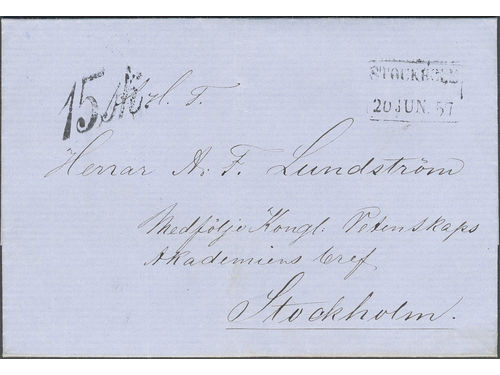 STOCKHOLM
20 JUN. 57
15 sk.
H. T.
Herrar A. F. Lundström
Medfölje Kongl. Vetenskaps
Akademiens bref
Stockholm.